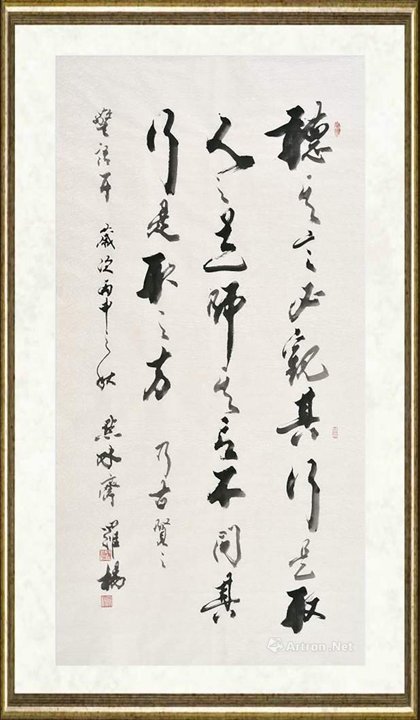 聽其言必觀其行是取
人之道師其言不問其
行是取之方 乃古賢之
警語耳 歲次丙申之秋 齋 羅楊
Artron.Net